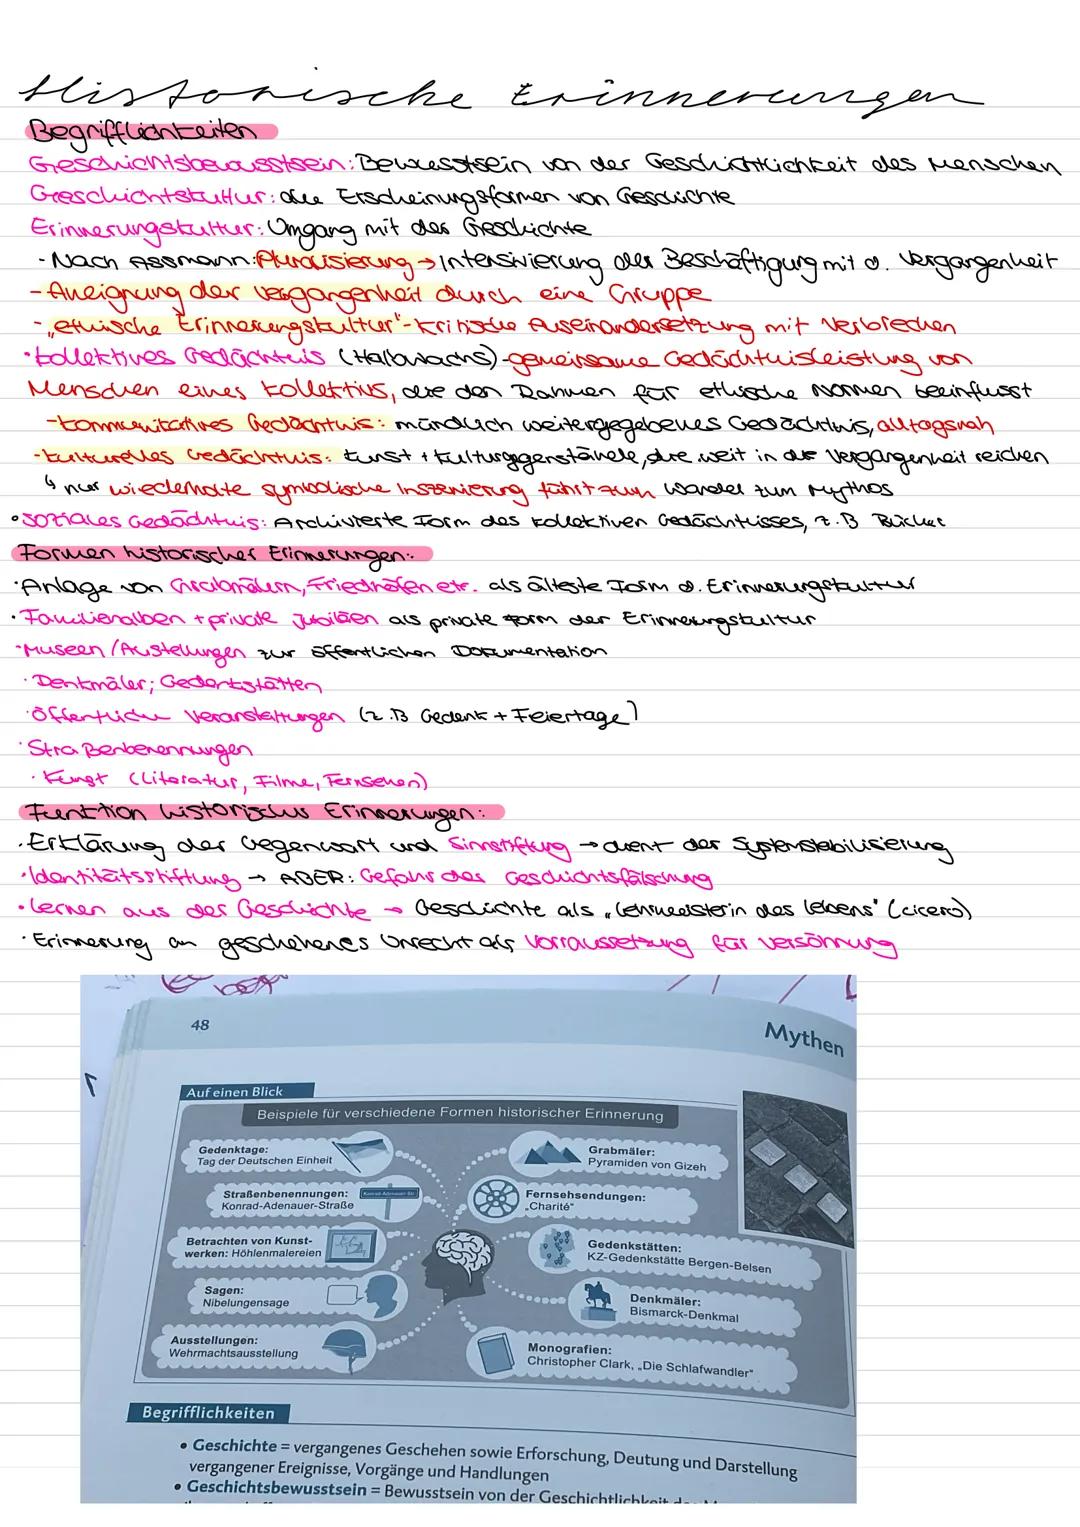 Historische Erinnerungen
Begrifflichkeiten
Geschichtsbewusstsein: Bewusstsein von der Geschichtlichkeit des Menschen
Geschichtskultur: die Erscheinungsformen von Geschichte
Erinnerungskultur: Umgang mit der Geschichte
- Nach Assmann: Pluralisierung → Intensivierung der Beschäftigung mit d. Vergangenheit
- Aneignung der Vergangenheit durch eine Gruppe
- „ethische Erinnerungskultur" - kritische Auseinandersetzung mit Verbrechen
• kollektives Gedächtnis (Halbwachs) - gemeinsame Gedächtnisleistung von
Menschen eines Kollektivs, die den Rahmen für ethische Normen beeinflusst
- kommunikatives Gedächtnis: mündlich weitergegebenes Gedächtnis, alltagsnah
- kulturelles Gedächtnis: Kunst + Kulturgegenstände, die weit in die Vergangenheit reichen
↳ nur wiederholte symbolische Inszenierung führt zum Wandel zum Mythos
• soziales Gedächtnis: Archivierte Form des kollektiven Gedächtnisses, z.B Bücher
Formen historischer Erinnerungen:
• Anlage von Grabmälern, Friedhöfen etc. als älteste Form d. Erinnerungskultur
• Familienalben + private Jubiläen als private Form der Erinnerungskultur
• Museen / Austellungen zur öffentlichen Dokumentation
• Denkmäler; Gedenkstätten
• Öffentliche Veranstaltungen (z.B Gedenk + Feiertage)
• Straßenbenennungen
• Kunst (Literatur, Filme, Fernsehen)
Funktion historischer Erinnerungen:
• Erklärung der Gegenwart und Sinnstiftung → dient der Systemstabilisierung
• Identitätsstiftung → ABER: Gefahr der Geschichtsfälschung
• Lernen aus der Geschichte → Geschichte als „Lehrmeisterin des Lebens" (Cicero)
• Erinnerung an geschehenes Unrecht als Vorraussetzung für Versöhnung
48
Mythen
Auf einen Blick
Beispiele für verschiedene Formen historischer Erinnerung
Gedenktage:
Tag der Deutschen Einheit
Grabmäler:
Pyramiden von Gizeh
Straßenbenennungen:
Konrad-Adenauer-Straße
Konrad-Adenauer-Str.
Fernsehsendungen:
„Charité"
Betrachten von Kunst-
werken: Höhlenmalereien
Gedenkstätten:
KZ-Gedenkstätte Bergen-Belsen
Sagen:
Nibelungensage
Denkmäler:
Bismarck-Denkmal
Ausstellungen:
Wehrmachtsausstellung
Monografien:
Christopher Clark, „Die Schlafwandler"
Begrifflichkeiten
• Geschichte = vergangenes Geschehen sowie Erforschung, Deutung und Darstellung
vergangener Ereignisse, Vorgänge und Handlungen
• Geschichtsbewusstsein = Bewusstsein von der Geschichtlichkeit